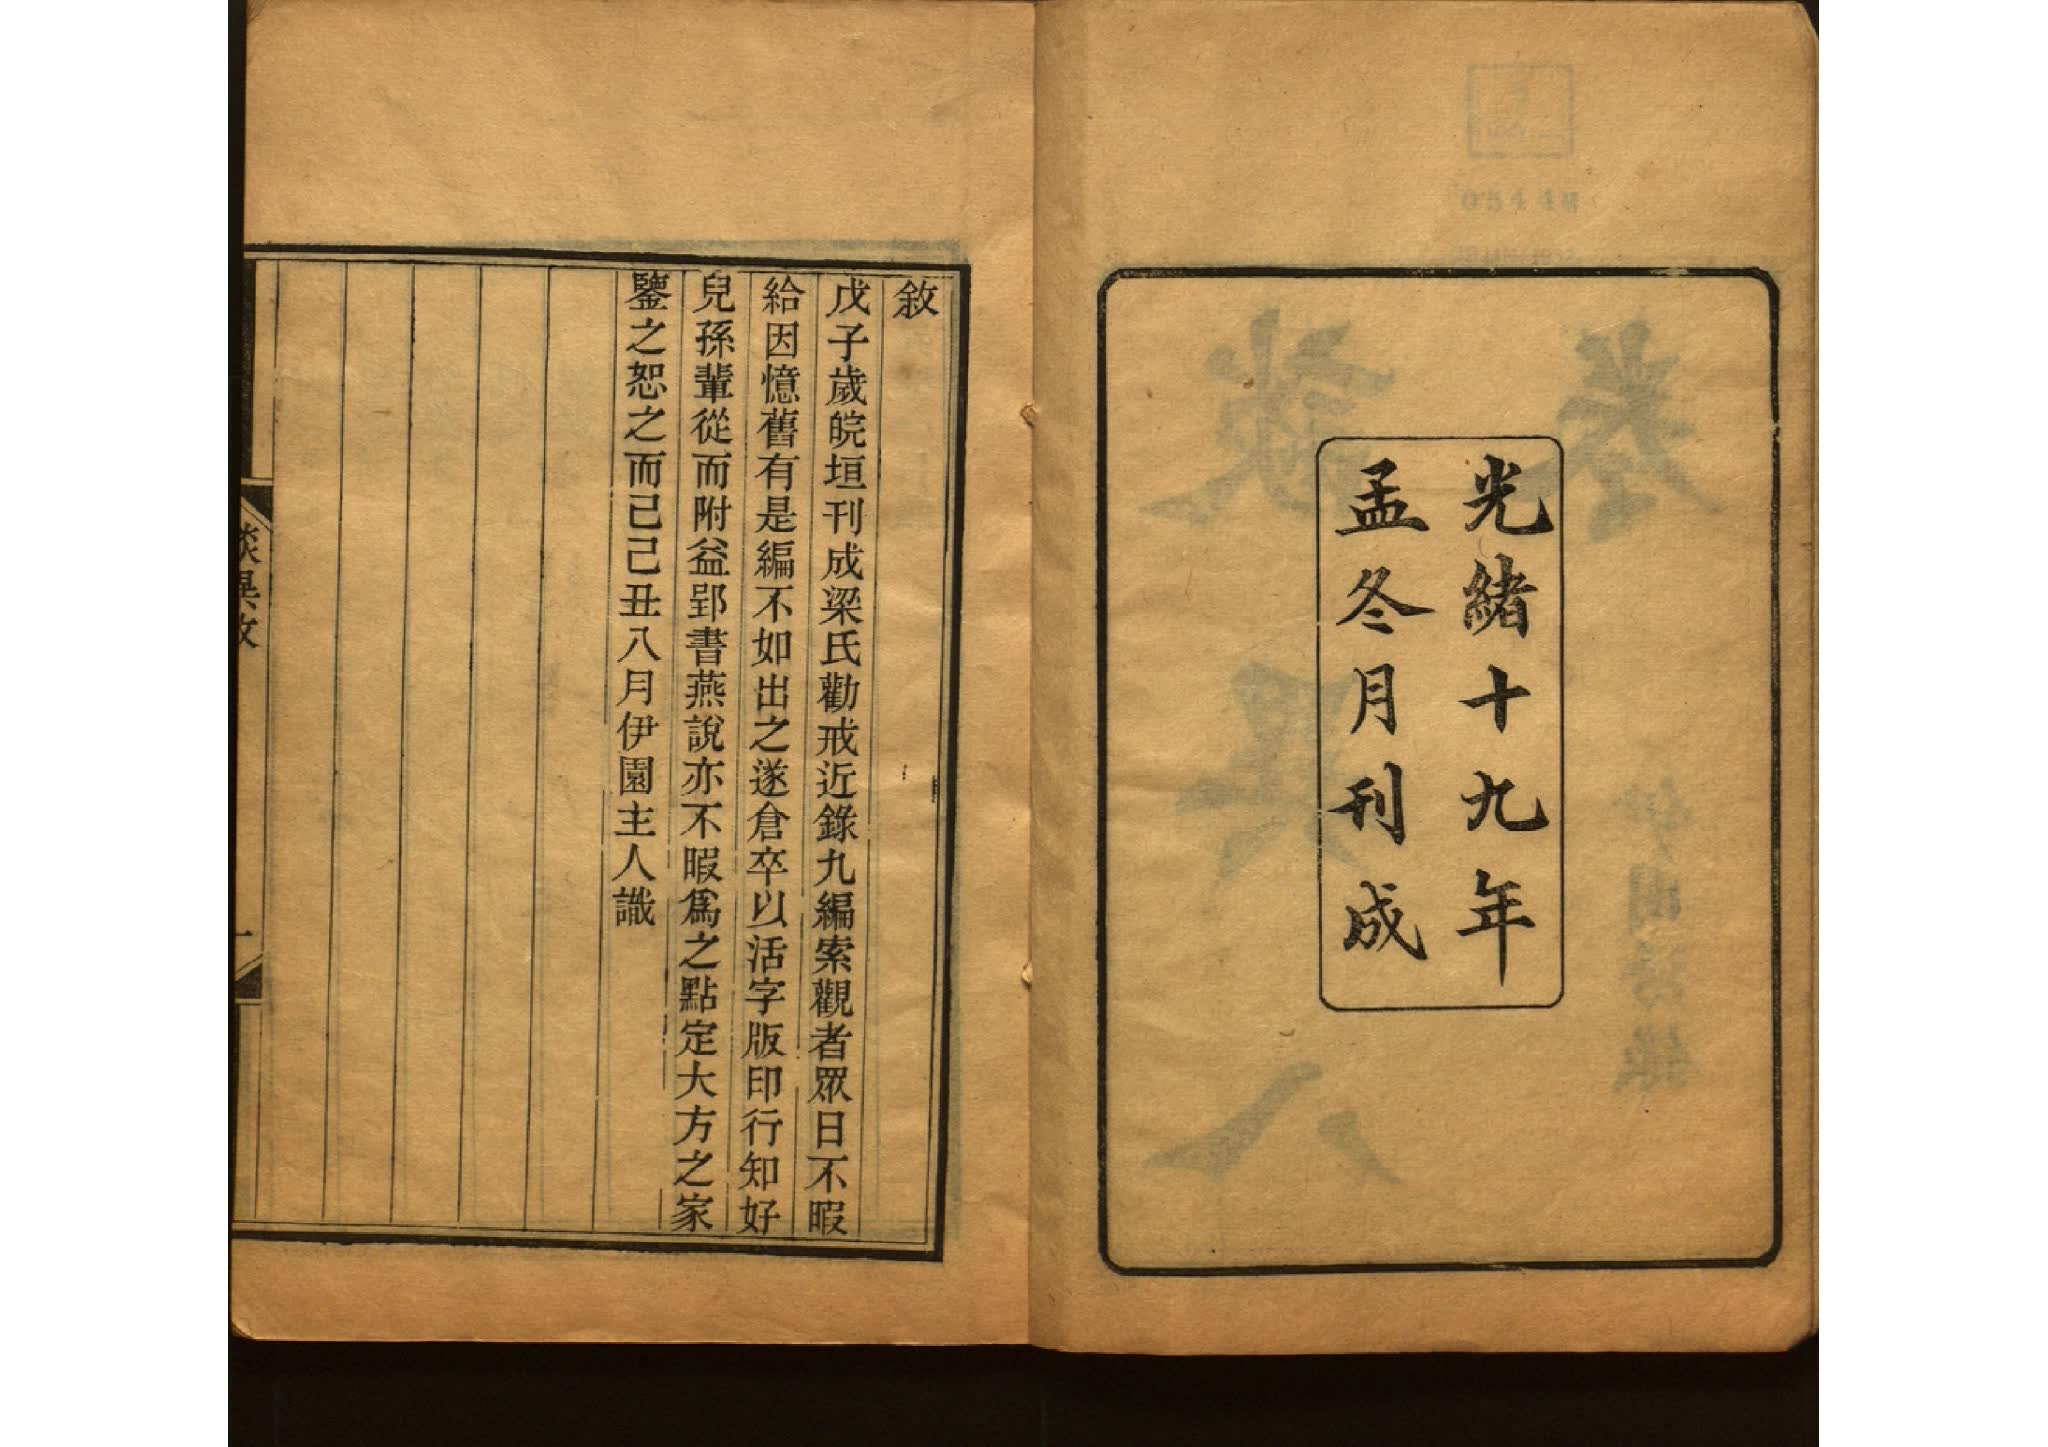 光緒十九年
孟冬月刊成
敘
戊子歲皖垣刊成梁氏勸戒近錄九編索觀者眾日不暇
給因憶舊有是編不如出之遂倉卒以活字版印行知好
兒孫輩從而附益郢書燕說亦不暇爲之點定大方之家
鑒之恕之而已己丑八月伊園主人識
談異敘
一